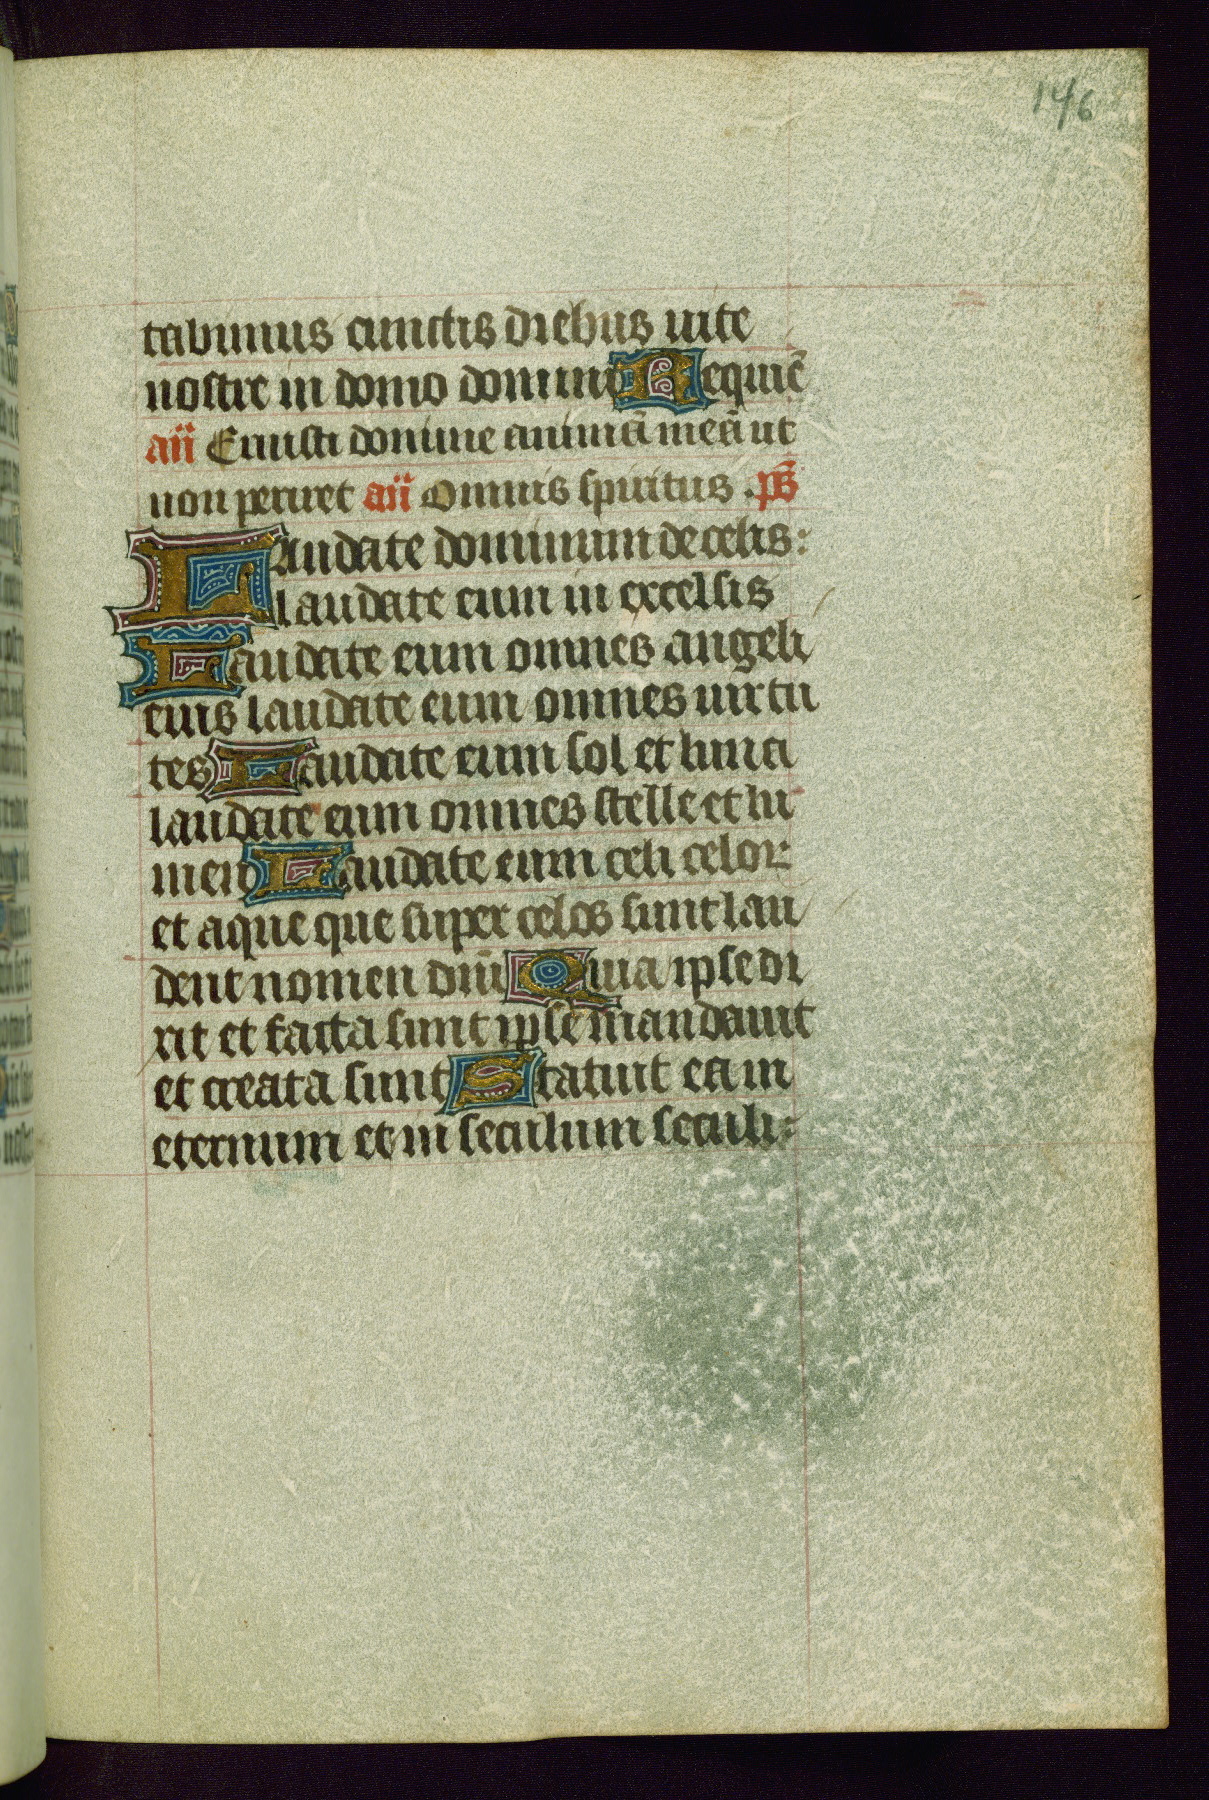 146
tabimus cunctis diebus uite
nostre in domo domini Requiē
añ Eruisti domine animā meā ut
non periret añ Omnis spiritus . ps
Laudate dominum de celis:
laudate eum in excelsis
Laudate eum omnes angeli
eius laudate eum omnes uirtu
tes Laudate eum sol et luna
laudate eum omnes stelle et lu
men Laudate eum celi celoꝝ
et aque que super celos sunt lau
dent nomen dñi Quia ipse di
xit et facta sunt ipse mandauit
et creata sunt Statuit ea in
eternum et in seculum seculi: